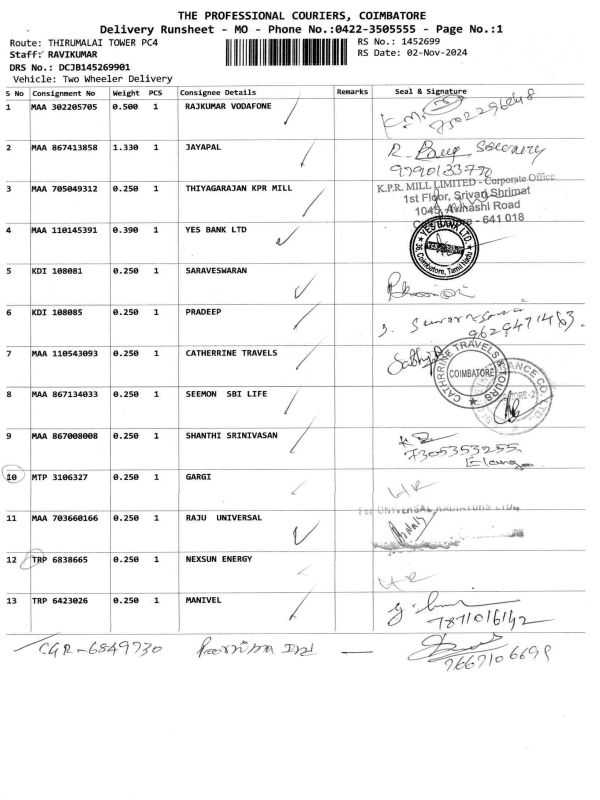 THE PROFESSIONAL COURIERS, COIMBATORE
Delivery Runsheet - MO - Phone No.:0422-3505555 - Page No.:1
Route: THIRUMALAI TOWER PC4 RS No.: 1452699
Staff: RAVIKUMAR RS Date: 02-Nov-2024
DRS No.: DCJB145269901
Vehicle: Two Wheeler Delivery
S No Consignment No Weight PCS Consignee Details Remarks Seal & Signature
1 MAA 302205705 0.500 1 RAJKUMAR VODAFONE
2 MAA 867413858 1.330 1 JAYAPAL
9790133770
3 MAA 705049312 0.250 1 THIYAGARAJAN KPR MILL K.P.R. MILL LIMITED - Corporate Office
1st Floor, Srivari Shrimat
1045, Avinashi Road
- 641 018
4 MAA 110145391 0.390 1 YES BANK LTD YES BANK LTD. Coimbatore, Tamil Nadu
5 KDI 108081 0.250 1 SARAVESWARAN
6 KDI 108085 0.250 1 PRADEEP
9629471463.
7 MAA 110543093 0.250 1 CATHERRINE TRAVELS CATHRRINE TRAVELS & TOURS COIMBATORE
8 MAA 867134033 0.250 1 SEEMON SBI LIFE
9 MAA 867008008 0.250 1 SHANTHI SRINIVASAN
7305353255
Elango
10 MTP 3106327 0.250 1 GARGI
11 MAA 703660166 0.250 1 RAJU UNIVERSAL For UNIVERSAL RADIATORS LTD.,
12 TRP 6838665 0.250 1 NEXSUN ENERGY
13 TRP 6423026 0.250 1 MANIVEL
7871016142
CGR-6849730
7667106699